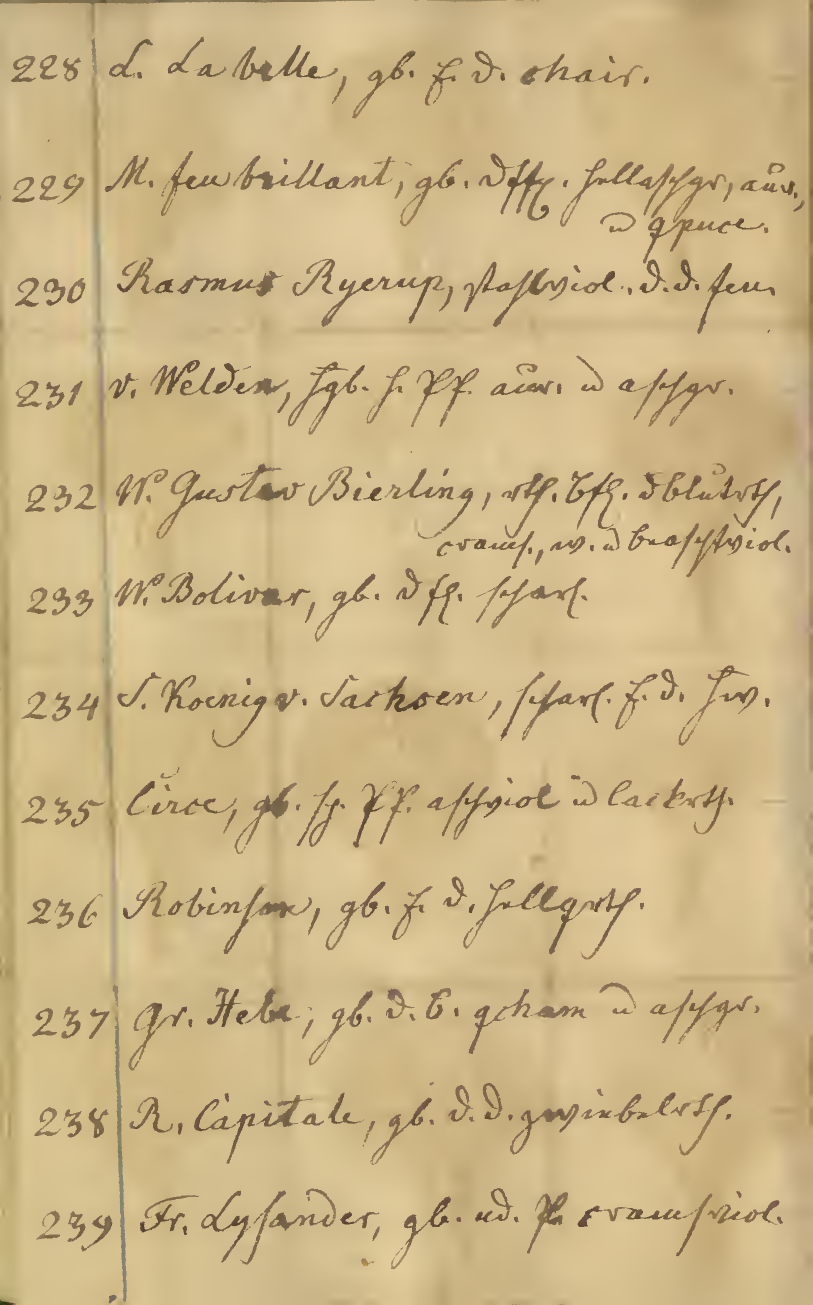 228 L. La belle, gb. f. d. chair.
229 M. feu brillant, gb. hellaschgr, aur.,
u qpuce.
230 Rasmus Ryerup, stahlviol. d. d. feu.
231 v. Welden, hgb. h. Pf. aur. u aschgr.
232 W. Gustav Bierling, rth. dblutrth,
w. u
233 W. Bolivar, gb. d scharl.
234 S. Koenig v. Sachsen, scharl. f. d. hw.
235 Circe, gb. Pf. aschviol u lackrth.
236 Robinson, gb. f. d. hellqrth.
237 Gr. Hebe, gb. d. b. qcham u aschgr.
238 R. Capitale, gb. d. d. zwiebelrth.
239 Fr. Lysander, gb. ud.